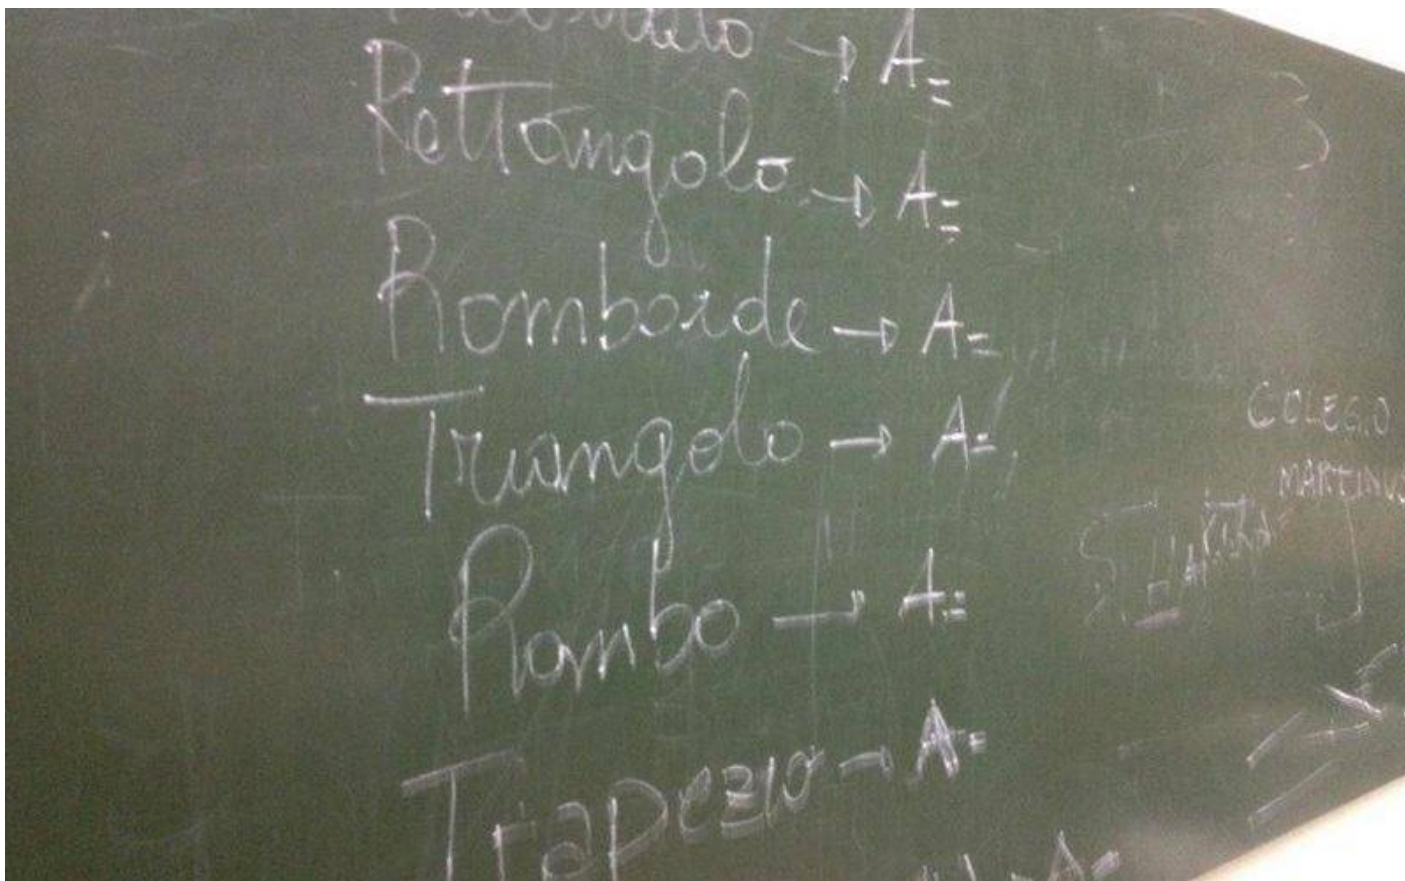 → A=
Rettangolo → A=
Romboide → A=
Triangolo → A=
Rombo → A=
Trapezio → A=
A=
COLEGIO
MARTINUS